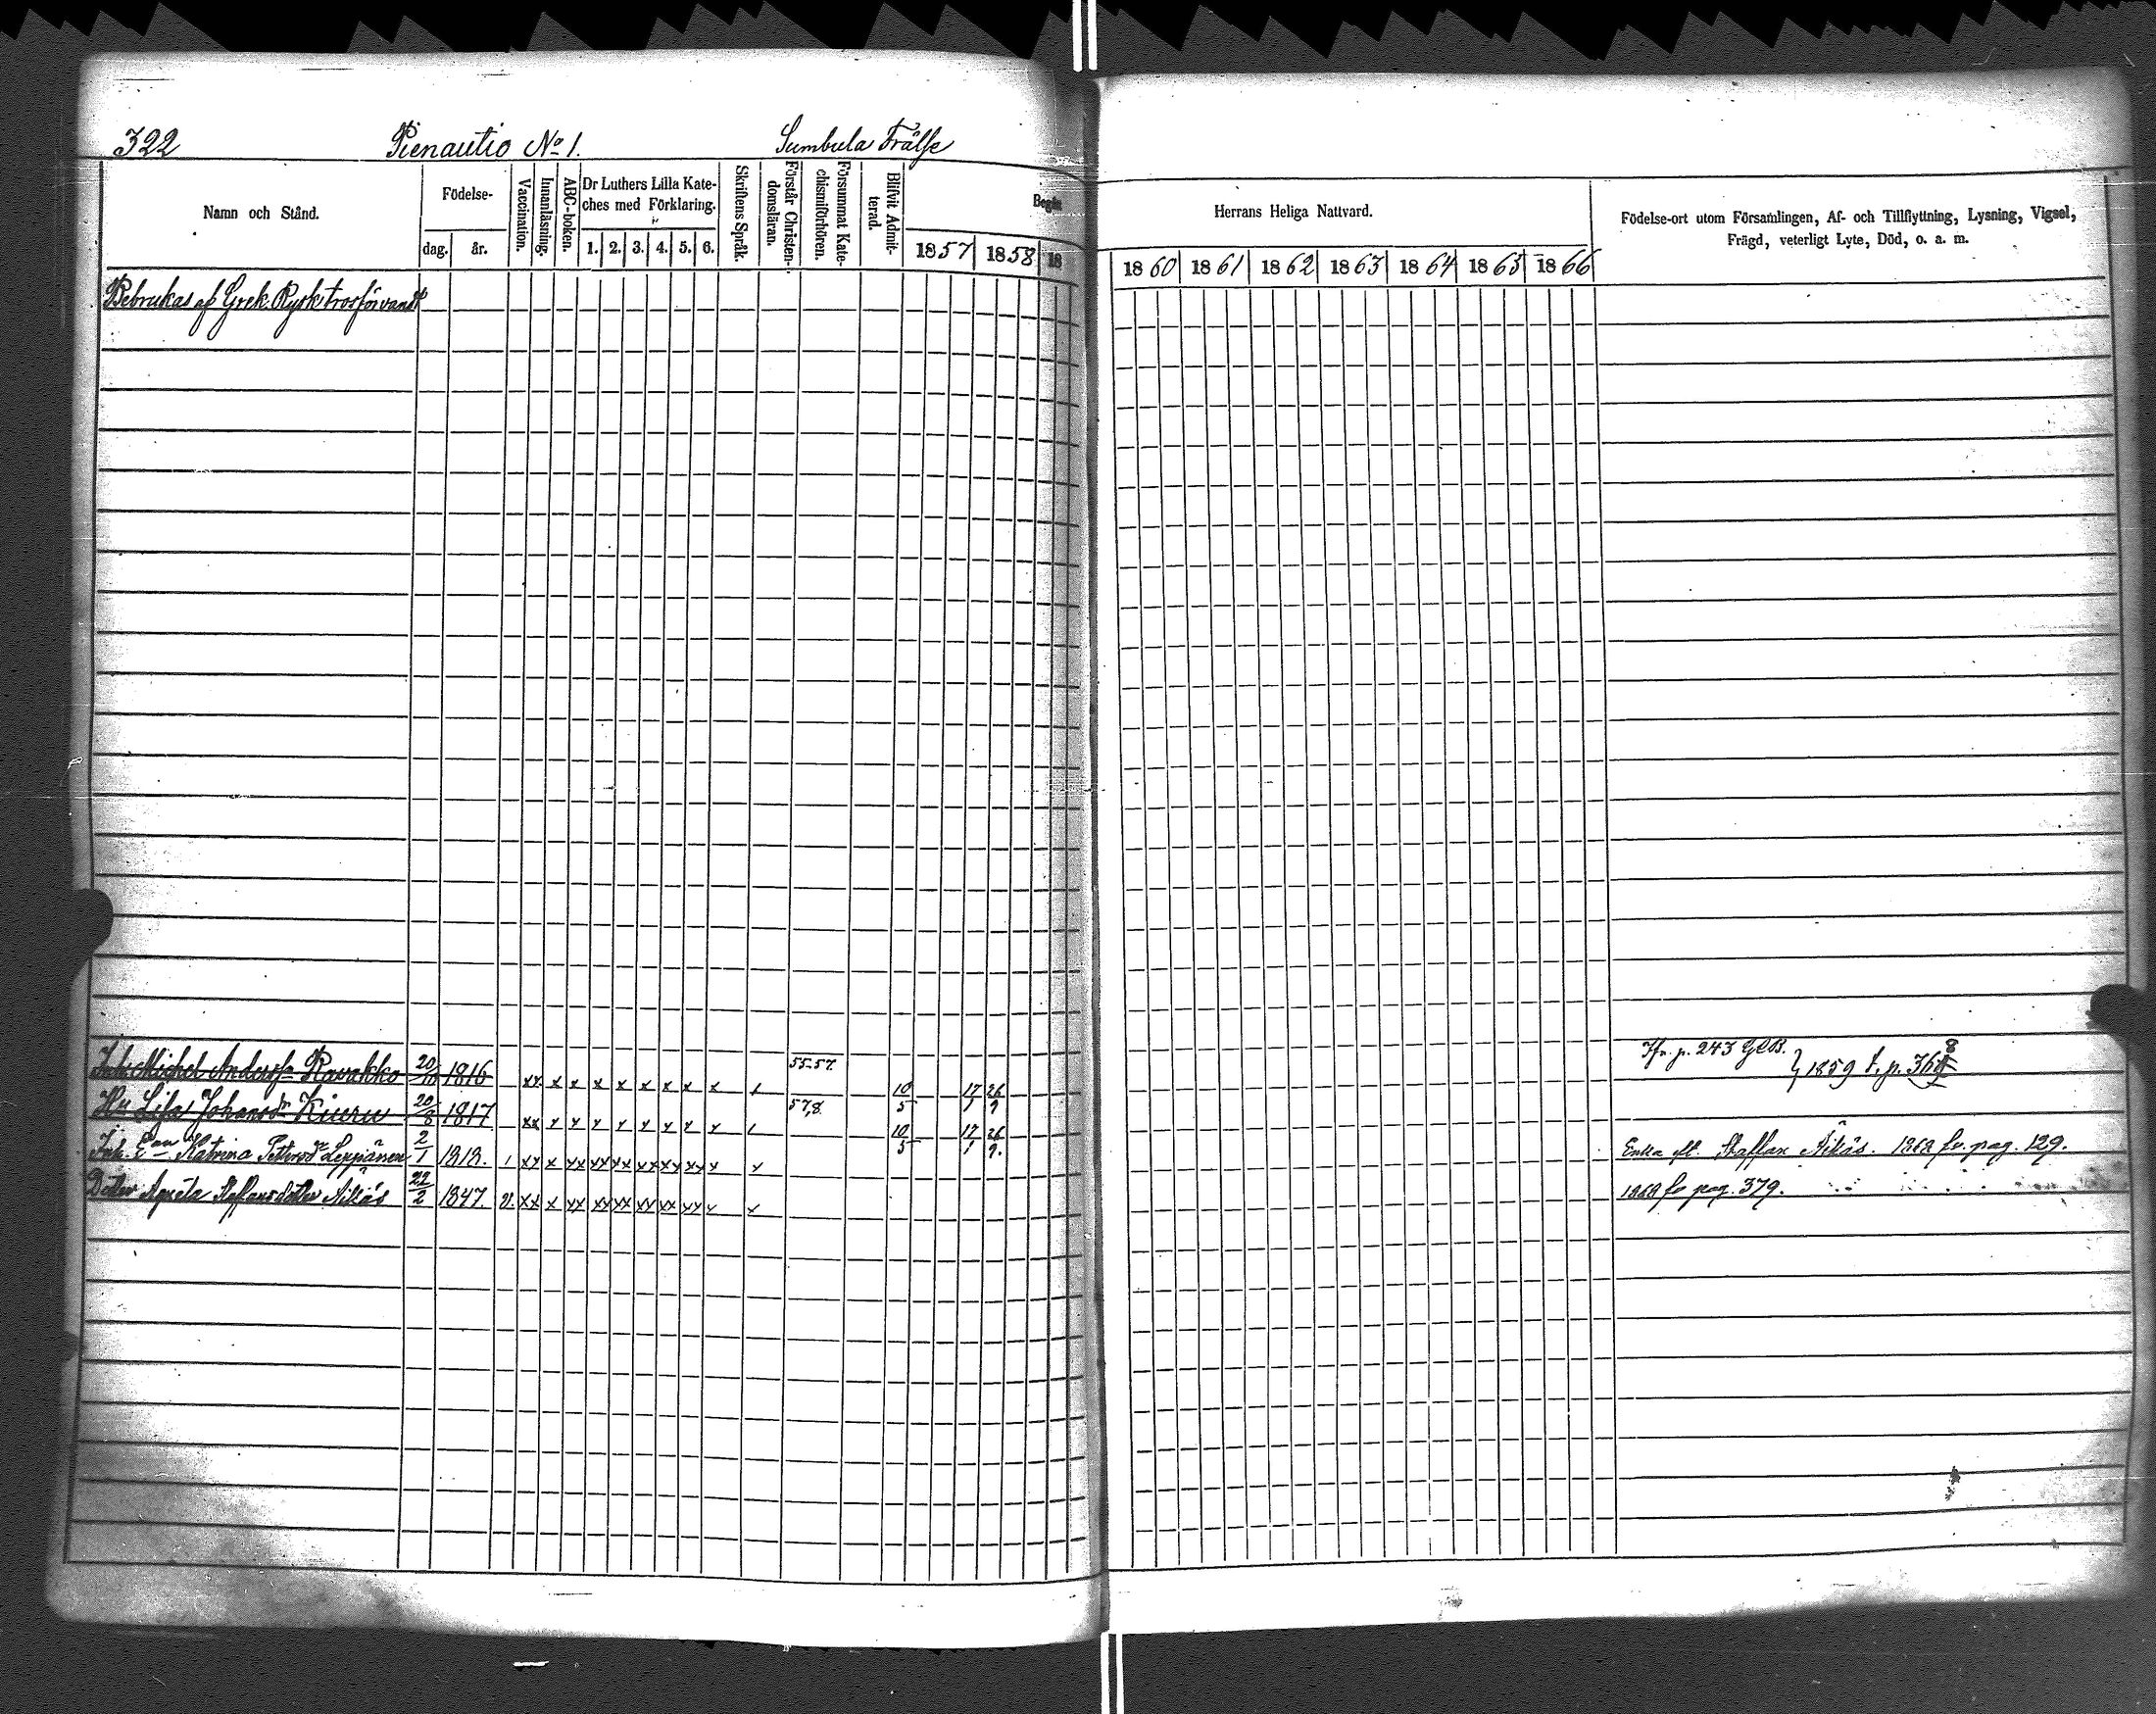 322 Pienautio No 1. Sumbula Frälse
Namn och Stånd.
Födelse-
dag. år.
Vaccination.
Innanläsning.
ABC-boken.
Dr Luthers Lilla Kate-
ches med Förklaring.
1. 2. 3. 4. 5. 6.
Skriftens Språk.
Förstår Christen-
domsläran.
Försummat Kate-
chismiförhören.
Blifvit Admit-
terad.
Begå
1857 1858 18
Herrans Heliga Nattvard.
1860 1861 1862 1863 1864 1865 1866
Födelse-ort utom Församlingen, Af- och Tillflyttning, Lysning, Vigsel,
Frägd, veterligt Lyte, Död, o. a. m.
Brukas af Grek. Rysk trosförvandt
Inh. Michel Anderss. Ravakko 20/10 1816 xx x x x x x x x x 55-57. 10/5 17/1 26/9 1859 t. p. 368
Hu Lisa Johansdr Kiuru 20/8 1817 xx x x x x x x x x 57,8. 10/5 17/1 26/9.
Inh. Katrina Pettersdr Leppänen 2/1 1818. xx x xx xx xx xx xx xx x x Enka Staffan Äikäs. 1868 fv. pag. 129.
Dotter Agneta Staffansdotter Äikäs 22/2 1847. v. xx x xx xx xx xx xx xx x x 1868 fv pag. 379.